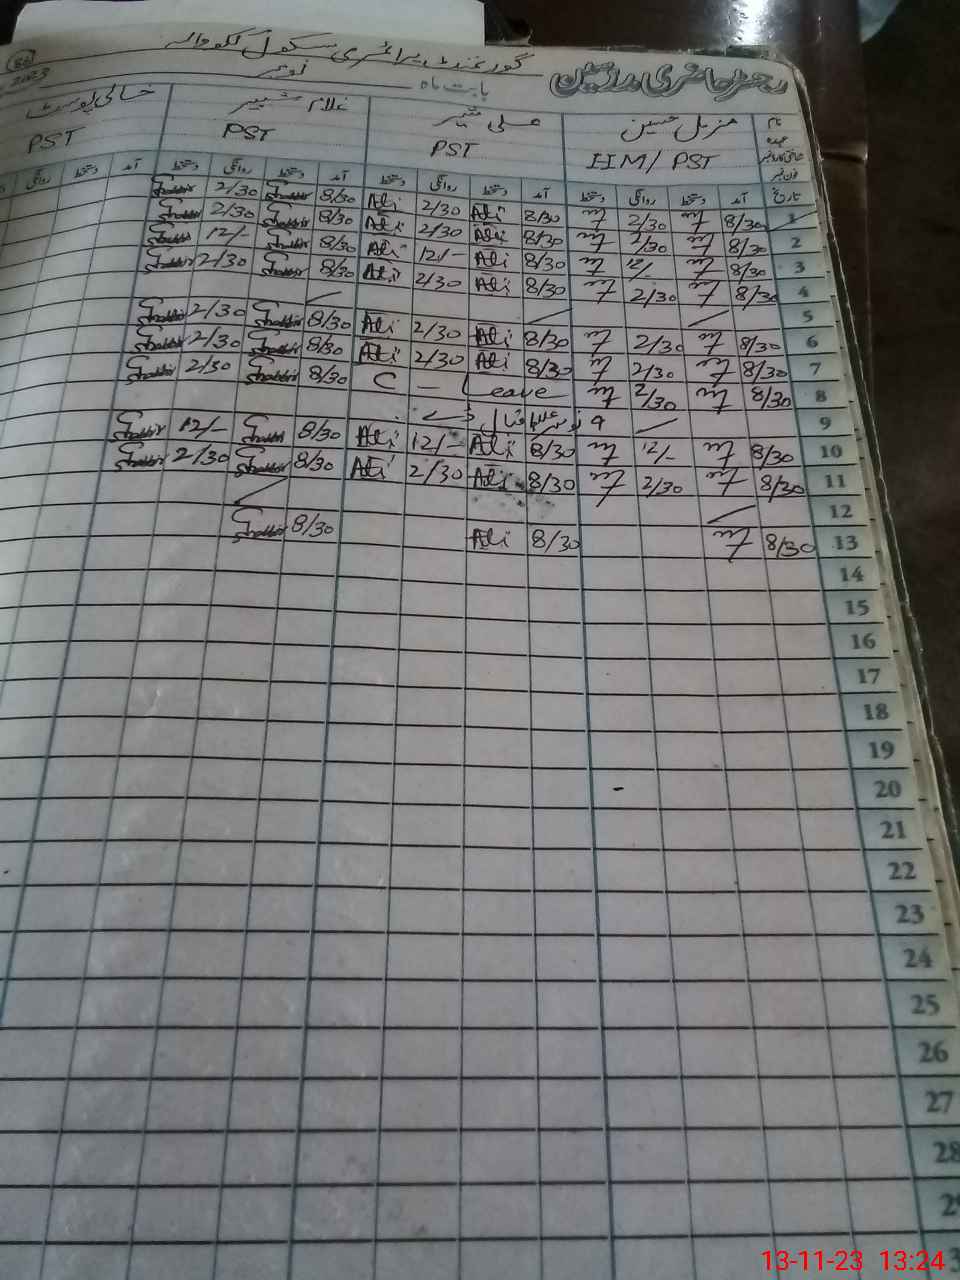 رجسٹر حاضری مدرسین گورنمنٹ پرائمری سکول
بابت ماہ نومبر 2023
نام مزمل حسین علی شیر غلام شبیر خالی پوسٹ
عہدہ HM/PST PST PST PST
تاریخ آمد دستخط روانگی دستخط آمد دستخط روانگی دستخط آمد دستخط روانگی دستخط آمد دستخط روانگی
1 8/30 2/30 8/30 Ali 2/30 Ali 8/30 Shabbir 2/30 Shabbir
2 8/30 2/30 8/30 Ali 2/30 Ali 8/30 Shabbir 2/30 Shabbir
3 8/30 12/- 8/30 Ali 12/- Ali 8/30 Shabbir 12/- Shabbir
4 8/30 2/30 8/30 Ali 2/30 Ali 8/30 Shabbir 2/30 Shabbir
5
6 8/30 2/30 8/30 Ali 2/30 Ali 8/30 Shabbir 2/30 Shabbir
7 8/30 2/30 8/30 Ali 2/30 Ali 8/30 Shabbir 2/30 Shabbir
8 8/30 2/30 C - Leave 8/30 Shabbir 2/30 Shabbir
9 9 نومبر اقبال ڈے
10 8/30 12/- 8/30 Ali 12/- Ali 8/30 Shabbir 12/- Shabbir
11 8/30 2/30 8/30 Ali 2/30 Ali 8/30 Shabbir 2/30 Shabbir
12
13 8/30 8/30 Ali 8/30 Shabbir
14
15
16
17
18
19
20
21
22
23
24
25
26
27
28
13-11-23 13:24